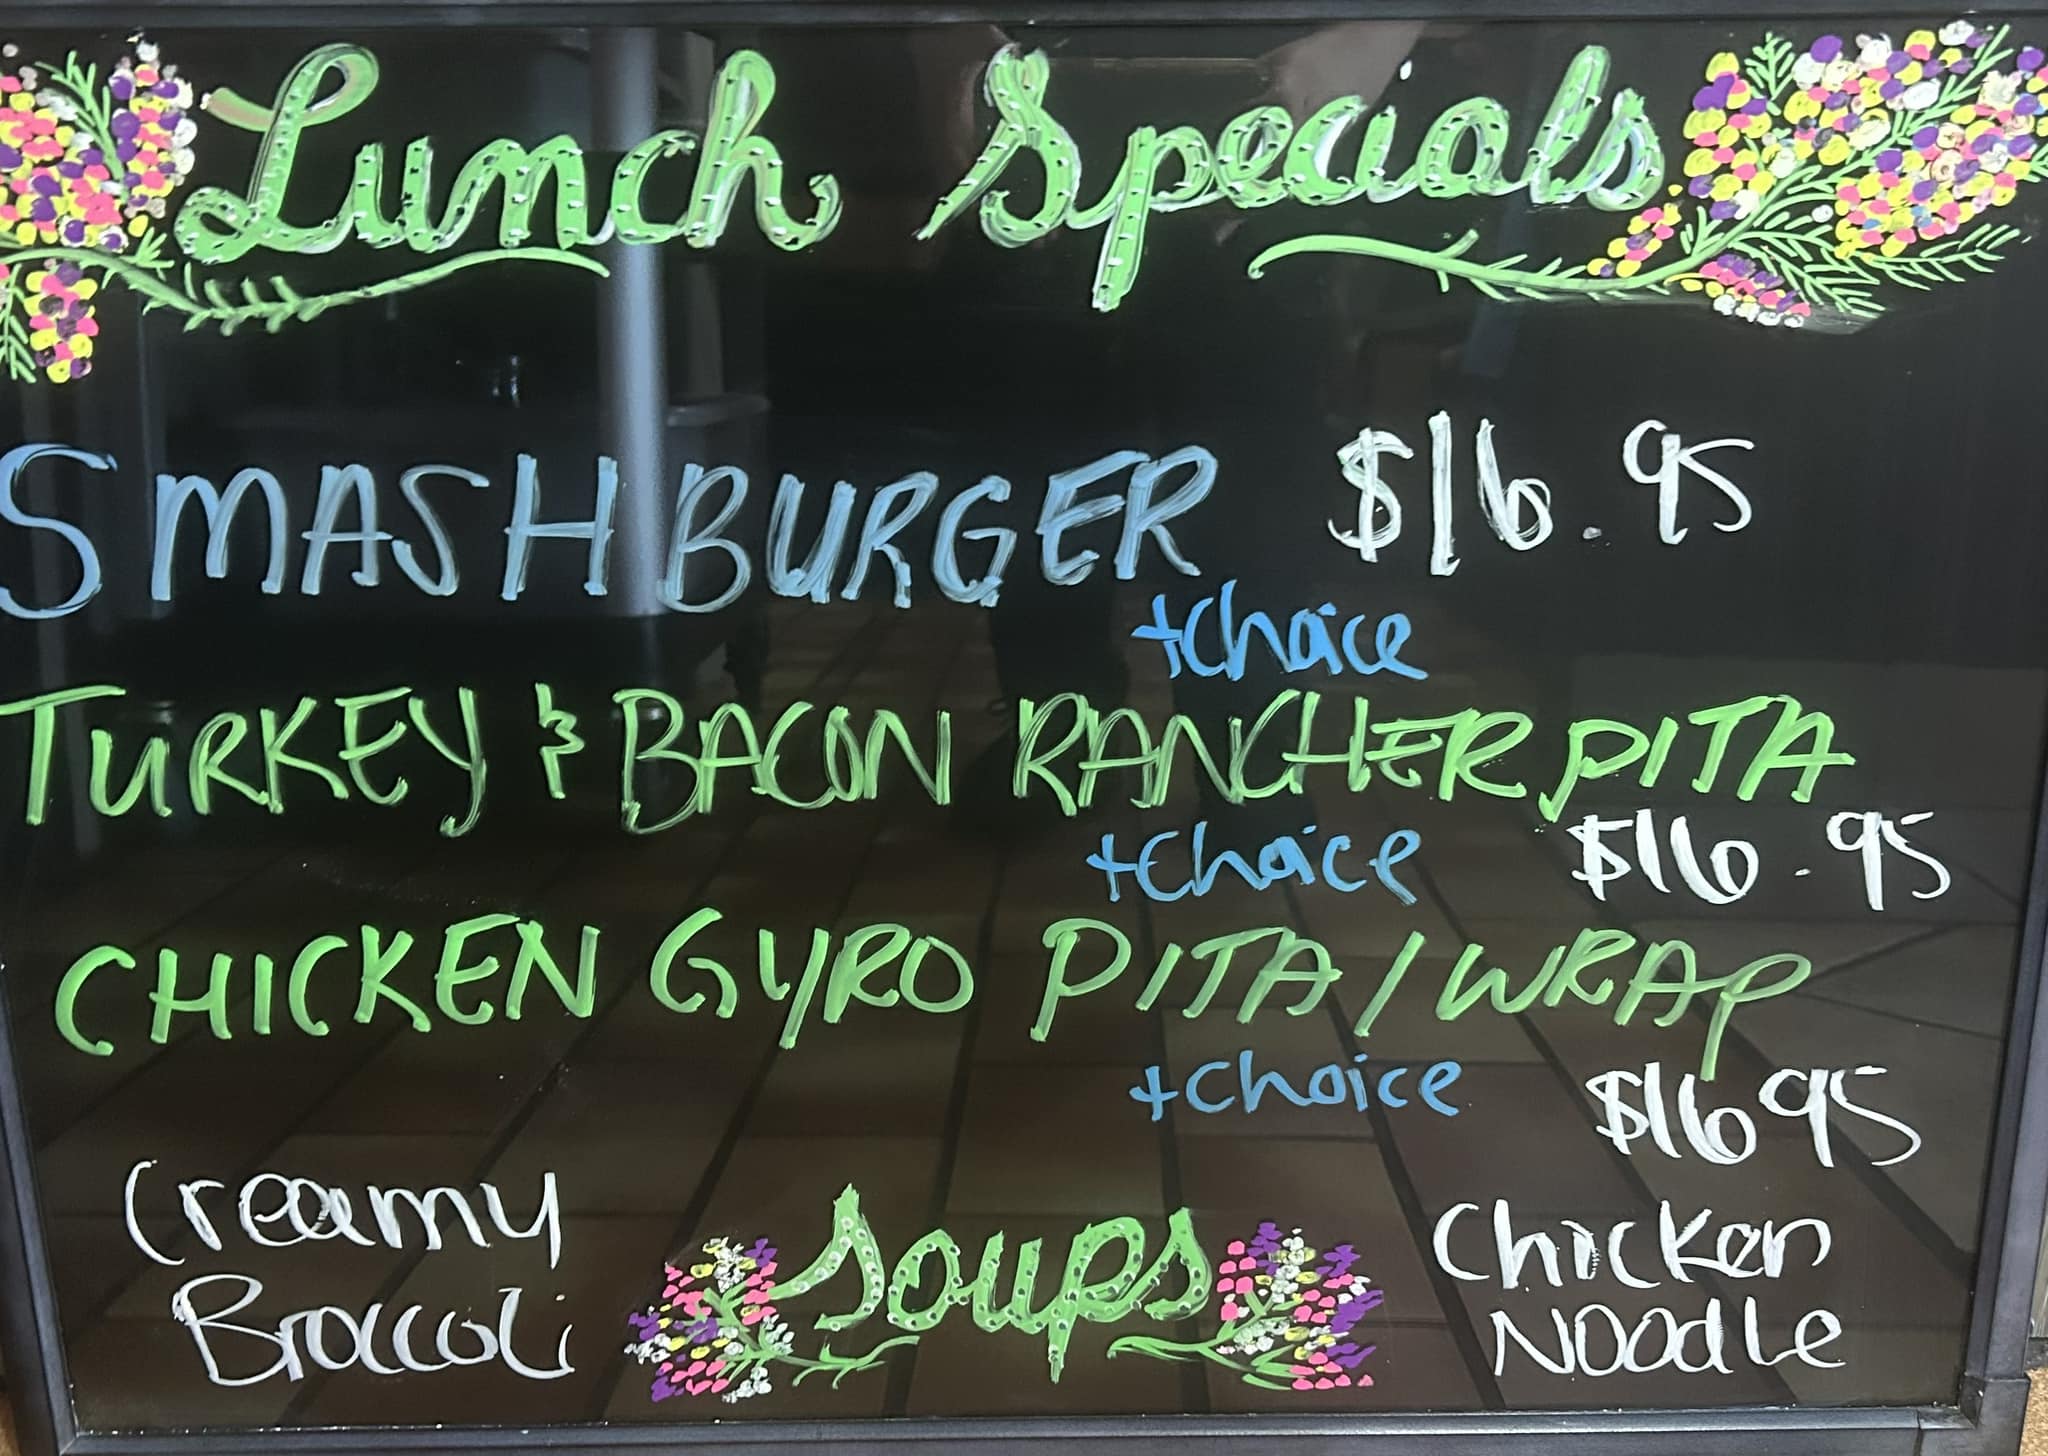 Lunch Specials
SMASH BURGER $16.95
+choice
TURKEY & BACON RANCHER PITA
+choice $16.95
CHICKEN GYRO PITA/WRAP
+choice $16 95
Creamy
Broccoli
Soups
Chicken
Noodle